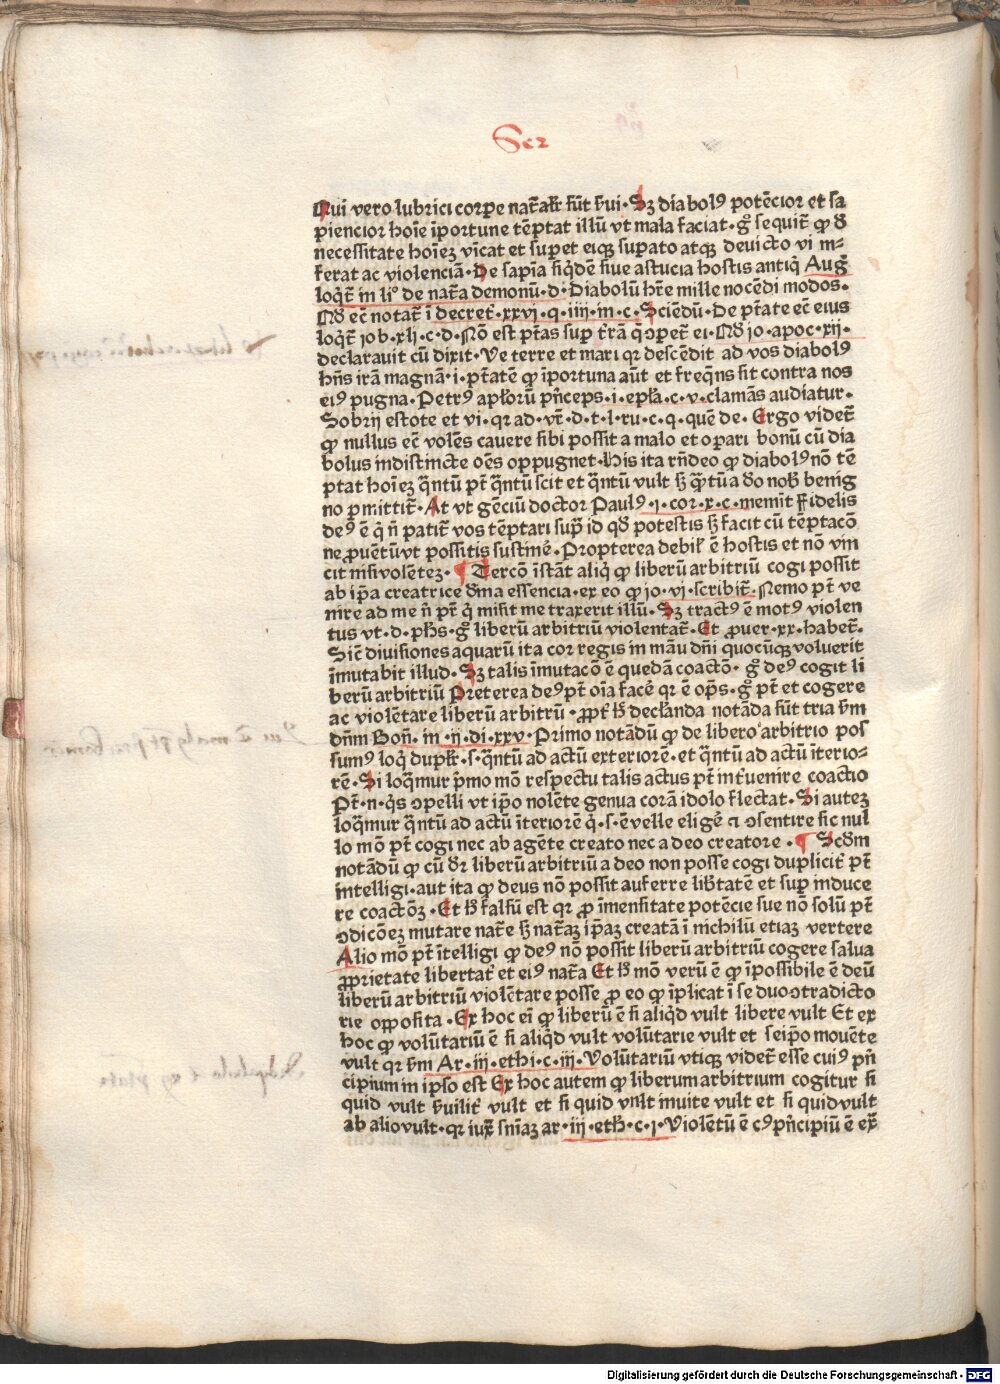 Scz
Qui vero lubrici corpe nat̄alr̄ sūt s̄ui · Sʒ diabolꝰ potēcior et sa
piencior hoīe īportune tēptat illū vt mala faciat · gͦ sequit̄ ꝙ d̄
necessitate hoīeʒ vīcat et supet eiqʒ supato atqʒ deuicto vi in⸗
ferat ac violenciā · De sapīa siq̇dē siue astucia hostis antiq̇ Augꝰ
loq̄t̄ in liͦ de nat̄a demonū · d · Diabolū hr̄e mille nocēdi modos ·
Qd̄ ec̄ notat̄ ī decret̄ · xxvj · q · iiij · m · c · Sciēdū · De ptāte ec̄ eius
loq̇t̄ job · xlj · c · d · Nō est ptās sup t̄rā q̇ ꝯpet̄ ei · Qd̄ jo · apoc · xij ·
declarauit cū dixit · Ve terre et mari qꝛ descēdit ad vos diabolꝰ
hn̄s irā magnā · i · pt̄atē ꝙ īportuna aūt et freq̄ns fit contra nos
eiꝰ pugna · Petrꝰ apl̄oꝝ pn̄ceps · i · epl̄a · c · v · clamās audiatur ·
Sobrij estote et vi · qꝛ ad · vr̄ · d · t · l · ru · c · q · quē de · Ergo videt̄
ꝙ nullus ec̄ volēs cauere sibi possit a malo et oꝑari bonū cū dia
bolus indistincte oēs oppugnet · His ita rn̄deo ꝙ diabolꝰ nō tē
ptat hoīeʒ q̄ntū pt̄ q̄ntū scit et q̄ntū vult sʒ q̄tū a deo nob̄ benig
no ꝑmittit̄ · At vt gēciū doctor Paulꝰ · j · cor · x · c · memīt Fidelis
deꝰ ē q̇ n̄ patit̄ vos tēptari sup̄ id qd̄ potestis sʒ facit cū tēptacō
ne ꝓuētū vt possitis sustiē · Propterea debil̄ ē hostis et nō vin
cit nisi volēteʒ · ¶ Tercō īstāt aliq̇ ꝙ liberū arbitriū cogi possit
ab ip̄a creatrice dīna essencia · ex eo ꝙ jo · vj · scribit̄ · Nemo pt̄ ve
nire ad me n̄ pr̄ q̇ misit me traxerit illū · Sʒ tractꝰ ē motꝰ violen
tus vt · d · ph̄s · gͦ liberū arbitriū violentat̄ · Et ꝓuer · xx · habet̄ ·
Sic̄ diuisiones aquarū ita cor regis in māu dn̄i quocūqʒ voluerit
īmutabit illud · Sʒ talis īmutacō ē quedā coactō · gͦ deꝰ cogit li
berū arbitriū Preterea deꝰ pt̄ oīa facē qꝛ ē op̄s · gͦ pt̄ et cogere
ac violētare liberū arbitrū · ꝓpt̄ h̄ declr̄anda notāda sūt tria s̄m
dn̄m Bon̄ · in · ij · di · xxv · Primo notādū ꝙ de libero arbitrio pos
sumꝰ loq̇ duplr̄ · s · q̄ntū ad actū exteriorē · et q̄ntū ad actū īterio⸗
rē · Si loq̄mur p̄mo mō respectu talis actus pt̄ int̄uenire coactio
Pt̄ · n · q̇s ꝯpelli vt ip̄o nolēte genua corā idolo flectat · Si auteʒ
loq̄mur q̄ntū ad actū īteriorē q̇ · s · ē velle eligē ⁊ ꝯsentire sic nul
lo mō pt̄ cogi nec ab agēte creato nec a deo creatore · ¶ Scd̄m
notādū ꝙ cū dr̄ liberū arbitriū a deo non posse cogi duplicit̄ pt̄
intelligi · aut ita ꝙ deus nō possit auferre lib̄tatē et sup induce
re coactōʒ · Et h̄ falsū est qꝛ ꝓ īmensitate potēcie sue nō solū pt̄
ꝯdicōeʒ mutare nat̄e sʒ nat̄aʒ ip̄aʒ creatā ī nichilū etiaʒ vertere
Alio mō pt̄ ītelligi ꝙ deꝰ nō possit liberū arbitriū cogere salua
ꝓprietate libertat̄ et eiꝰ nat̄a Et h̄ mō verū ē ꝙ īpossibile ē deū
liberū arbitriū violētare posse ꝓ eo ꝙ īplicat ī se duo ꝯtradicto
rie opposita · Ex hoc eī ꝙ liberū ē si aliq̇d vult libere vult Et ex
hoc ꝙ volūtariū ē si aliq̇d vult volūtarie vult et seip̄o mouēte
vult qꝛ s̄m Ar · iij · ethi · c · iij · Volūtariū vtiqʒ videt̄ esse cuiꝰ pn̄
cipium in ip̄so est Ex hoc autem ꝙ liberum arbitrium cogitur si
quid vult s̄uilit̄ vult et si quid vult inuite vult et si quid vult
ab alio vult · qꝛ iux̄ sn̄iaʒ ar · iij · eth̄ · c · j · Violētū ē cꝰ pn̄cipiū ē ex̄
Digitalisierung gefördert durch die Deutsche Forschungsgemeinschaft - DFG